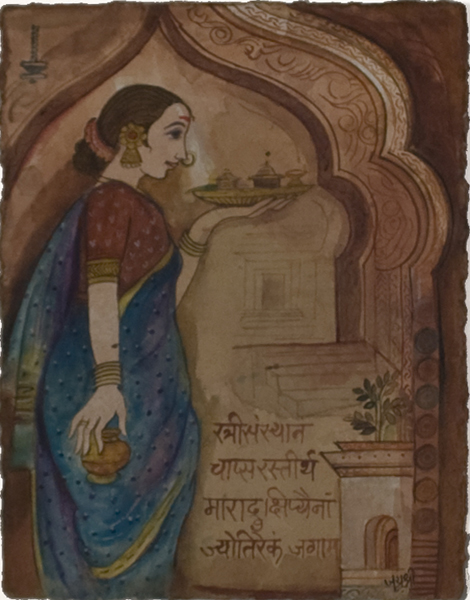 स्त्रीसंस्थान
चाप्सरस्तीर्थ
मारादुत्क्षिप्यैनां
ज्योतिरेकं जगाम